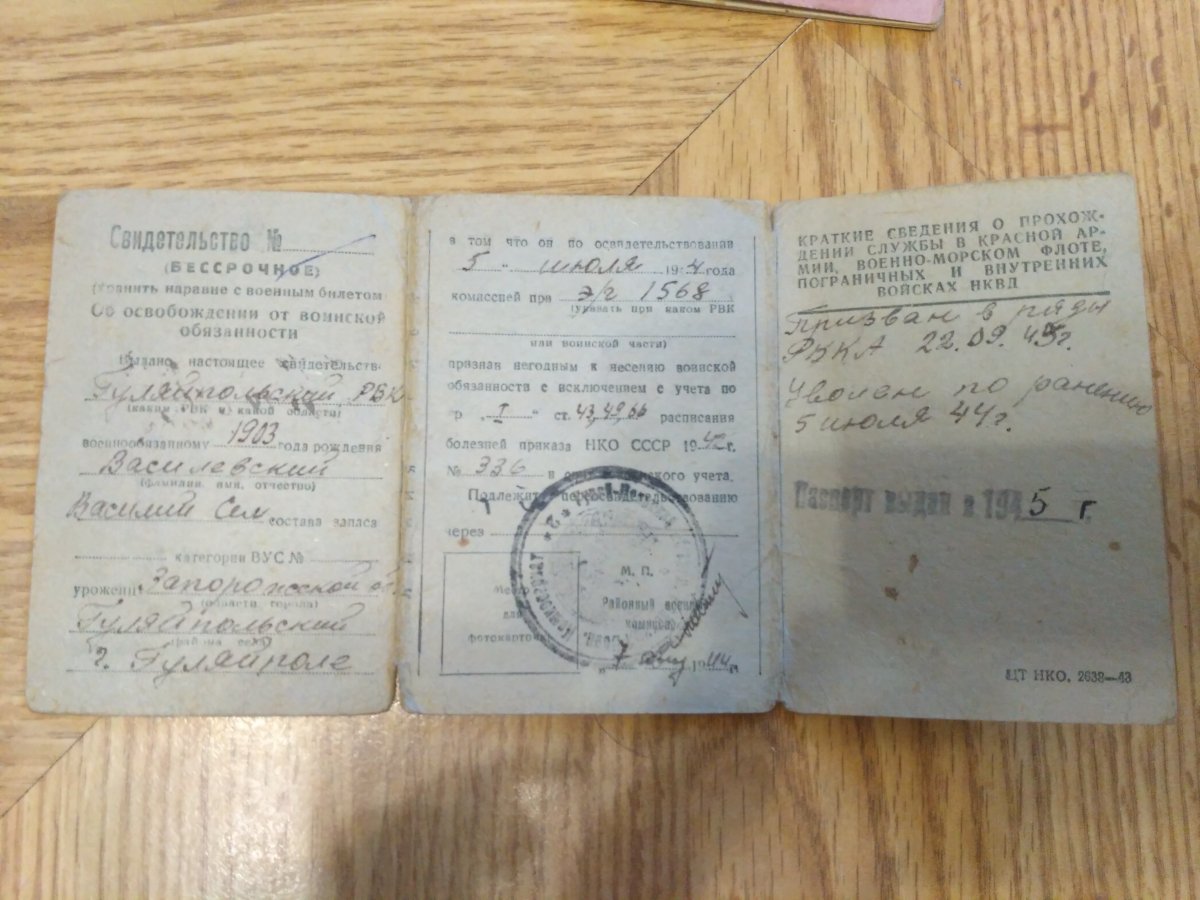 Свидетельство №
(БЕССРОЧНОЕ)
(хранить наравне с военным билетом)
Об освобождении от воинской
обязанности
Выдано настоящее свидетельств
Гуляйпольский РВК
(каким РВК и какой области)
военнообязанному 1903 года рождения
Василевский
(фамилия, имя, отчество)
Василий Сем состава запаса
категории ВУС №
уроженц Запорожской об
(области, города)
Гуляйпольский
(района, села)
г. Гуляйполе
в том что он по освидетельствовании
5 " июля 1944 года
комиссией при э/г 1568
(указать при каком РВК
или воинской части)
признан негодным к несению воинской
обязанности с исключением с учета по
гр „I" ст. 43, 49 расписания
болезней приказа НКО СССР 1942 г.
№ 336 учета.
Подлежит переосвидетельствованию
через
Место
для
фотокарточки
М. П.
Районный военный
комиссар
7 1944 г.
КРАТКИЕ СВЕДЕНИЯ О ПРОХОЖ-
ДЕНИИ СЛУЖБЫ В КРАСНОЙ АР-
МИИ, ВОЕННО-МОРСКОМ ФЛОТЕ,
ПОГРАНИЧНЫХ И ВНУТРЕННИХ
ВОЙСКАХ НКВД
Призван в ряды
РККА 22.09.43г.
Уволен по ранению
5 июля 44г.
Паспорт выдан в 1945 г.
ЦТ НКО. 2638—43